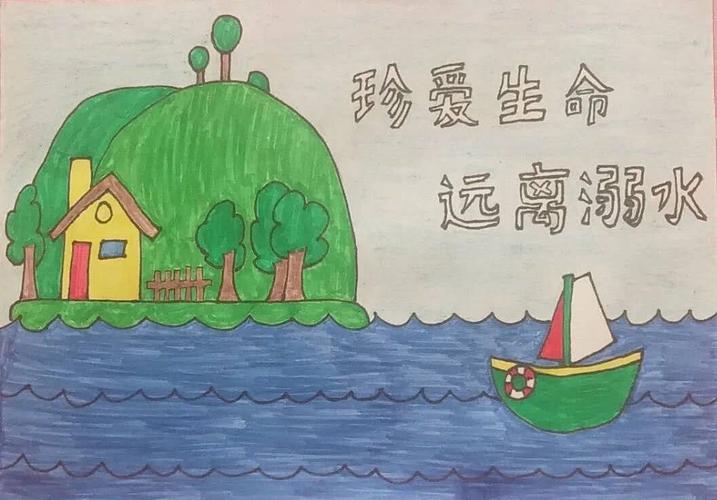 珍爱生命
远离溺水